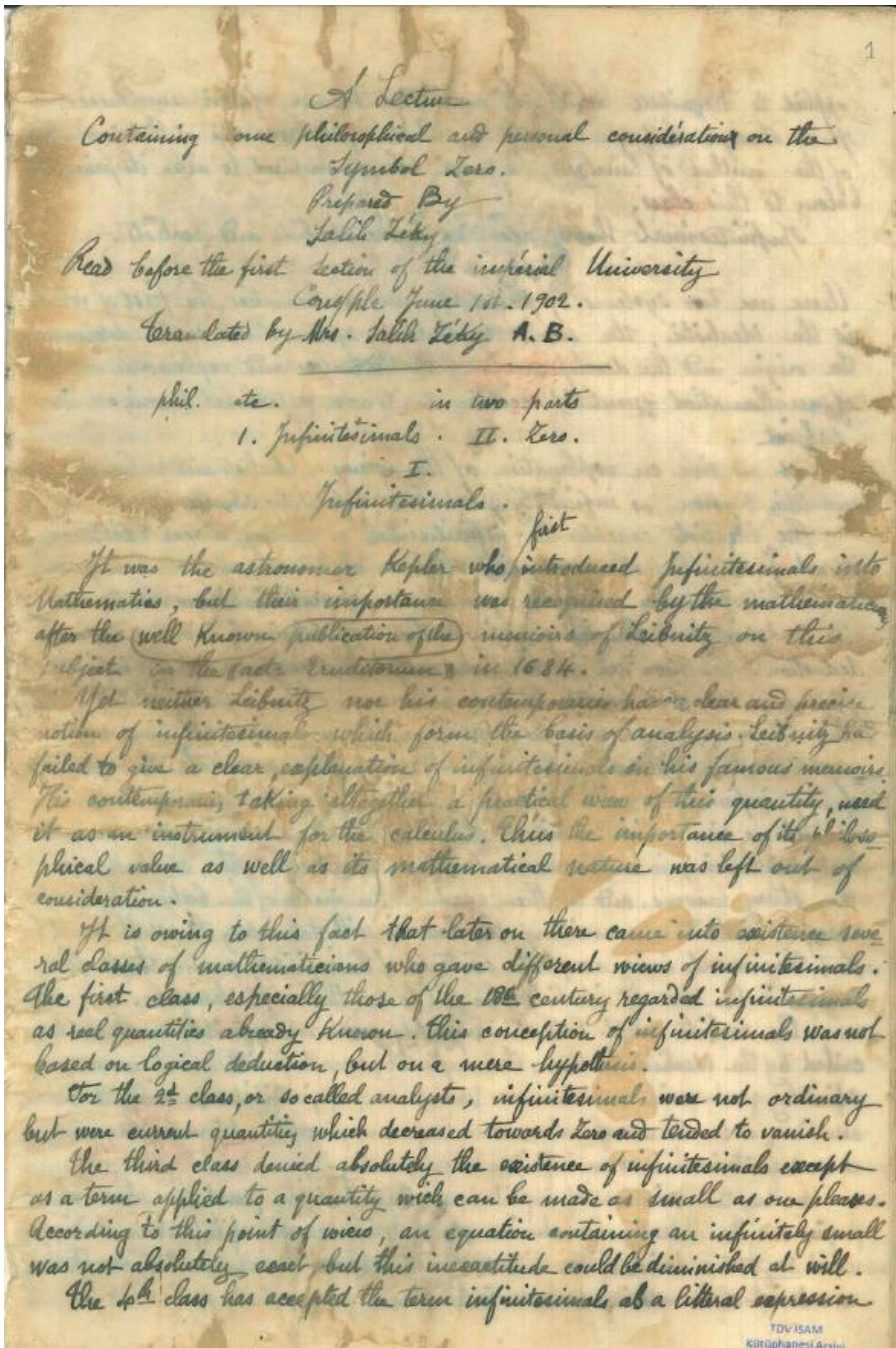 1
A Lecture
Containing some philosophical and personal considérations on the
Symbol Zero.
Prepared By
Salih Zéky
Read before the first Section of the impérial University
Conple June 1st. 1902.
Translated by Mrs. Salih Zéky A. B.
phil. etc. in two parts
1. Infinitesimals. II. Zero.
I.
Infinitesimals.
first
It was the astronomer Kepler who introduced Infinitesimals into
Mathematics, but their importance was recognised by the mathematicians
after the well Known publication of the memoirs of Leibnitz on this
subject in the acta Eruditorum in 1684.
Yet neither Leibnitz nor his contemporaries had a clear and precise
notion of infinitesimals which form the basis of analysis. Leibnitz had
failed to give a clear explanation of infinitesimals in his famous memoirs.
His contemporains, taking altogether a practical view of this quantity, used
it as an instrument for the calculus. Thus the importance of its philoso
phical value as well as its mathematical nature was left out of
consideration.
It is owing to this fact that later on there came into existence seve
ral classes of mathematicians who gave different views of infinitesimals.
The first class, especially those of the 18th century regarded infinitesimals
as real quantities already Known. This conception of infinitesimals was not
based on logical deduction, but on a mere hypothesis.
For the 2d class, or so called analysts, infinitesimals were not ordinary
but were current quantities which decreased towards Zero and tended to vanish.
The third class denied absolutely the existence of infinitesimals except
as a term applied to a quantity wich can be made as small as one pleases.
According to this point of view, an equation containing an infinitely small
was not absolutely exact, but this inexactitude could be diminished at will.
The 4th class has accepted the term infinitesimals as a litteral expression
TDV ISAM
Kütüphanesi Arşivi